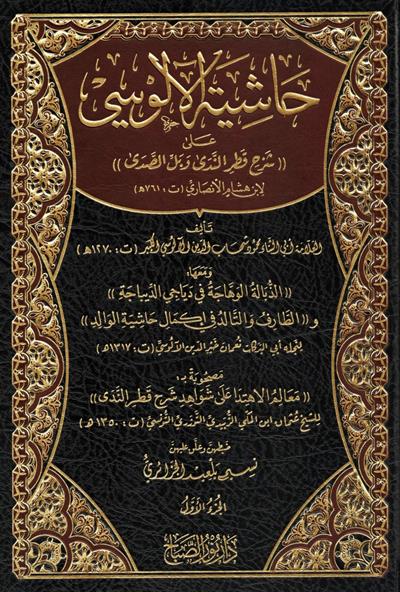 حاشية الآلوسي
على
((شرح قطر الندى وبل الصدى))
لابن هشام الأنصاري (ت: ٧٦١هـ)
تأليف
العلامة أبي الثناء محمود شهاب الدين الآلوسي الكبير (ت: ١٢٧٠هـ)
ومعها:
((الذبالة الوهاجة في دياجي الديباجة))
و((الطارف والتالد في إكمال حاشية الوالد))
لنجله أبي البركات نعمان خير الدين الآلوسي (ت: ١٣١٧هـ)
مصحوبة بـ:
((معالم الاهتدا على شواهد شرح قطر الندى))
للشيخ عثمان ابن المكي الزبيدي التوزري التونسي (ت: ١٣٥٠هـ)
ضبطهن وعلق عليهن
نسيم بلعيد الجزائري
الجزء الأول
دار نور الصباح